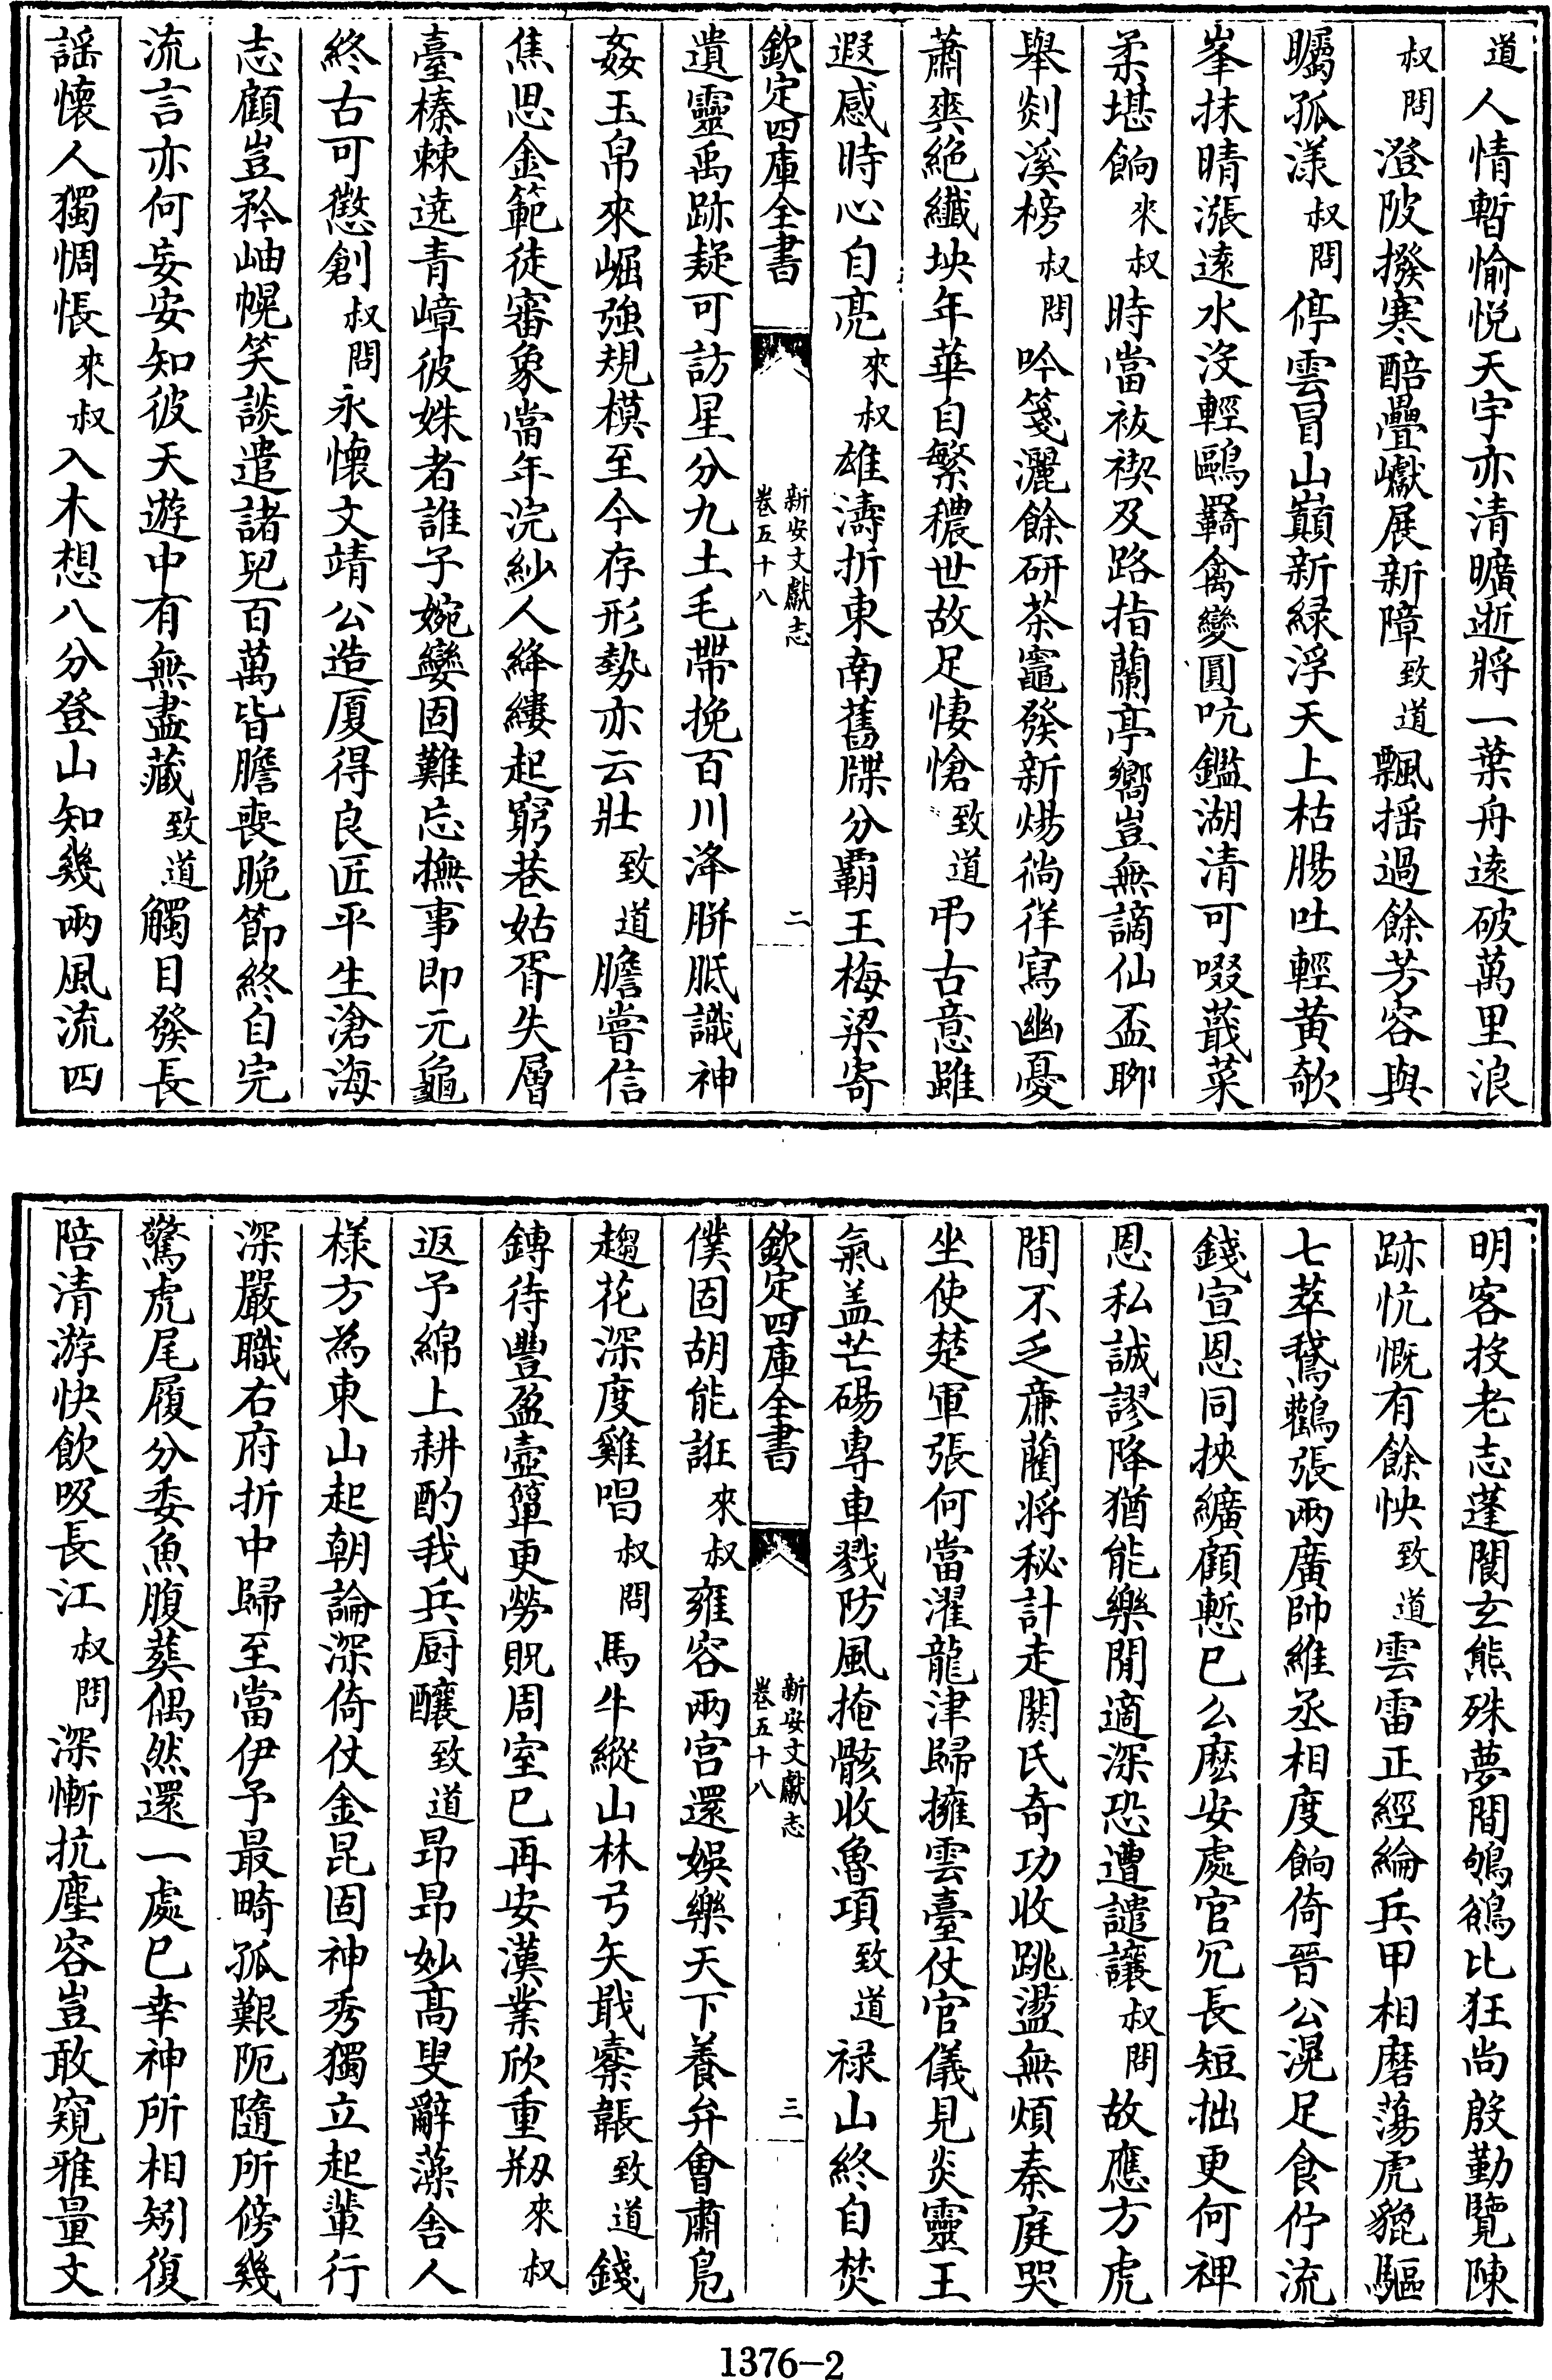 道人情暫愉悅天宇亦清曠逝將一葉舟遠破萬里浪
叔問澄陂撥寒醅疊巘展新障致道飄揺過餘芳容與
矚孤漾叔問停雲冒山巔新緑浮天上枯腸吐輕黃欹
峯抹晴漲逺水没輕鷗羇禽變圓吭鑑湖清可啜蕺菜
柔堪餉來叔時當祓禊及路指蘭亭嚮豈無謫仙盃聊
舉剡溪榜叔問吟箋灑餘研茶竈發新煬徜徉寫幽憂
蕭爽絶纎坱年華自繁穠世故足悽愴致道弔古意雖
遐感時心自亮來叔雄濤折東南舊牒分覇王梅梁寄
欽定四庫全書
新安文獻志
卷五十八
二
遺靈禹跡疑可訪星分九土毛帶挽百川洚胼胝識神
姦玉帛來崛強規模至今存形勢亦云壯致道膽嘗信
焦思金範徒審象當年浣紗人絳縷起窮巷姑胥失層
臺榛棘遶青嶂彼姝者誰子婉孌固難忘撫事即元龜
終古可懲創叔問永懷文靖公造厦得良匠平生滄海
志顧豈矜岫幌笑談遣諸兒百萬皆膽喪晚節終自完
流言亦何妄安知彼天遊中有無盡藏致道觸目發長
謡懷人獨惆悵來叔入木想八分登山知幾兩風流四
明客投老志蓬閬玄熊殊夢間鴝鵒比狂尚殷勤覽陳
跡忼慨有餘怏致道雲雷正經綸兵甲相磨蕩虎貔驅
七萃鵞鸛張兩廣帥維丞相度餉倚晉公滉足食佇流
錢宣恩同挾纊顧慙已么麽安處官冗長短拙更何裨
恩私誠謬降猶能樂閒適深恐遭譴讓叔問故應方虎
間不乏亷藺將秘計走閼氏奇功收跳盪無煩秦庭哭
坐使楚軍張何當濯龍津歸擁雲臺仗官儀見炎靈王
氣盖芒碭專車戮防風掩骸收魯項致道禄山終自焚
欽定四庫全書
新安文獻志
卷五十八
三
僕固胡能誑來叔雍容兩宫還娯樂天下養弁會肅鳬
趨花深度雞唱叔問馬牛縱山林弓矢戢櫜韔致道錢
鏄待豐盈壺簞更勞貺周室已再安漢業欣重剏來叔
返予綿上耕酌我兵厨釀致道昻昻妙髙叟辭藻舍人
様方為東山起朝論深倚仗金昆固神秀獨立起輩行
深嚴職右府折中歸至當伊予最畸孤艱阨隨所傍幾
驚虎尾履分委魚腹葬偶然還一處已幸神所相矧復
陪清游快飲吸長江叔問深慚抗塵容豈敢窺雅量文
1376-2